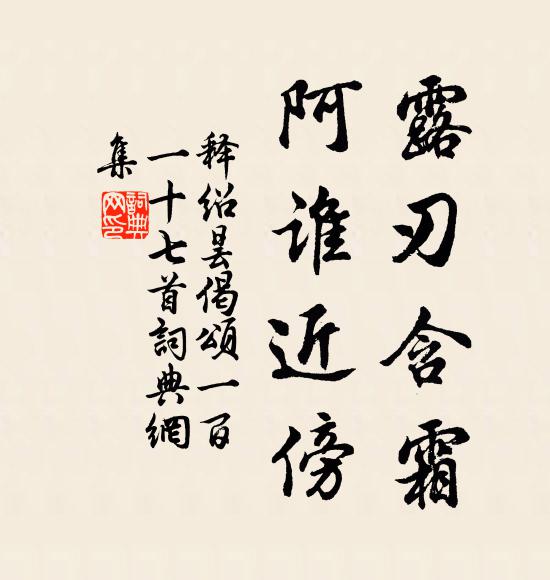 露刃含霜
阿谁近傍
释绍昙偈颂一百
一十七首詞典網
集
詞典
网印